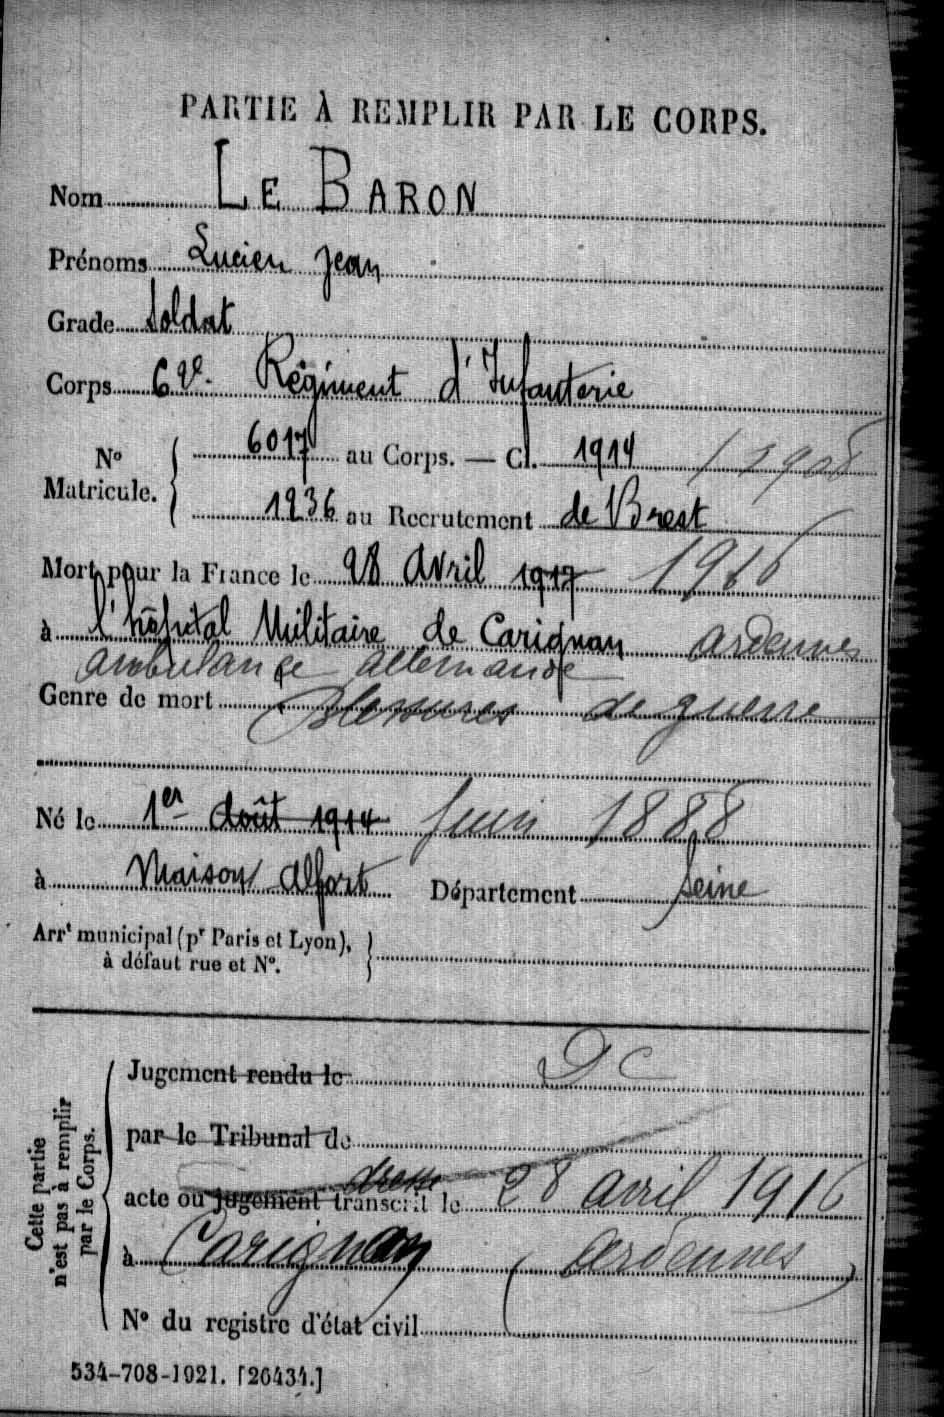 PARTIE À REMPLIR PAR LE CORPS.
Nom LE BARON
Prénoms Lucien Jean
Grade Soldat
Corps 6 2e. Régiment d'Infanterie
No Matricule. { 6017 au Corps. — Cl. 1914 / 1908
1236 au Recrutement de Brest
Mort pour la France le 28 Avril 1917 1916
à l'hôpital Militaire de Carignan ardennes
ambulance allemande
Genre de mort Blessures de guerre
Né le 1er Août 1914 juin 1888
à Maison Alfort Département Seine
Arrt municipal (pr Paris et Lyon), à défaut rue et No. }
Cette partie n'est pas à remplir par le Corps.
Jugement rendu le DC
par le Tribunal de
acte ou jugement transcrit dressé le 28 avril 1916
à Carignan (Ardennes)
No du registre d'état civil
534-708-1921. [26434.]